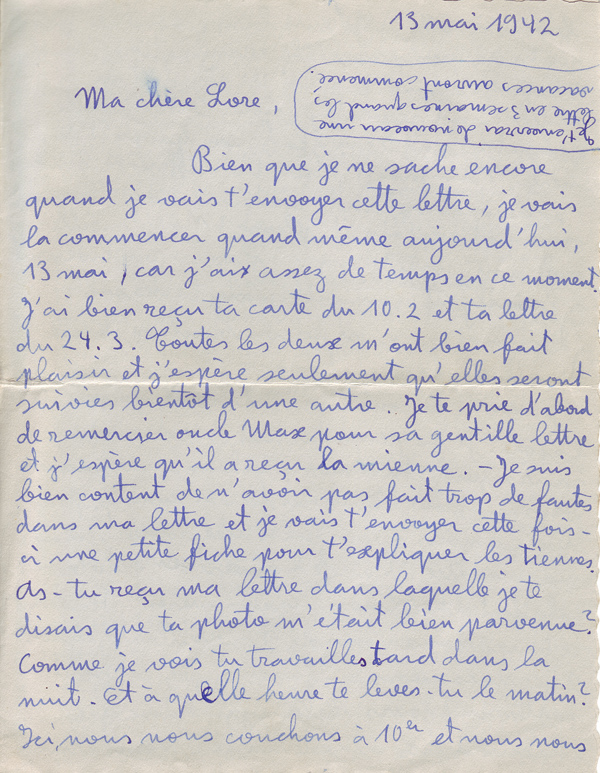 13 mai 1942
Je t'enverrai de nouveau une
lettre en 3 semaines quand les
vacances auront commencé.
Ma chère Lore,
Bien que je ne sache encore
quand je vais t'envoyer cette lettre, je vais
la commencer quand même aujourd'hui,
13 mai, car j'aix assez de temps en ce moment.
J'ai bien reçu ta carte du 10.2 et ta lettre
du 24.3. Toutes les deux m'ont bien fait
plaisir et j'espère seulement qu'elles seront
suivies bientôt d'une autre. Je te prie d'abord
de remercier oncle Max pour sa gentille lettre
et j'espère qu'il a reçu la mienne. – Je suis
bien content de n'avoir pas fait trop de fautes
dans ma lettre et je vais t'envoyer cette fois-
ci une petite fiche pour t'expliquer les tiennes.
As-tu reçu ma lettre dans laquelle je te
disais que ta photo m'était bien parvenue?
Comme je vois tu travailles tard dans la
nuit. Et à quelle heure te lèves-tu le matin?
Ici, nous nous couchons à 10 et nous nous